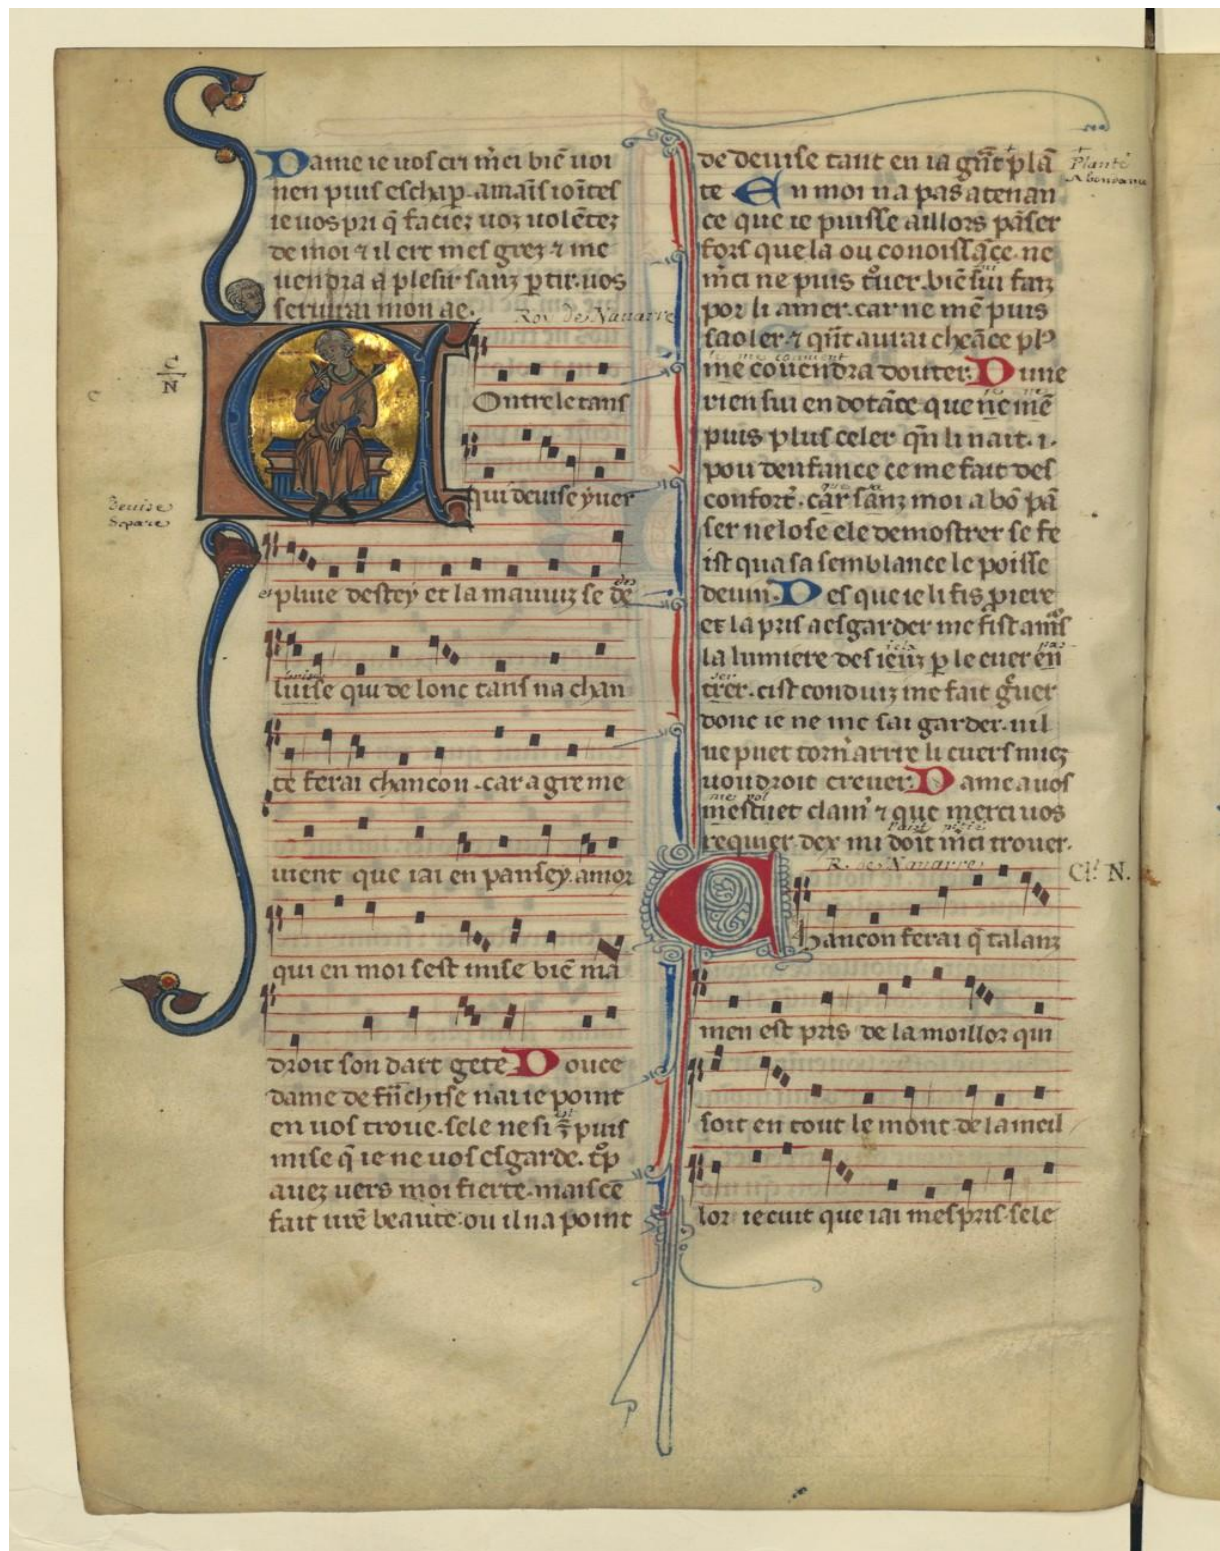 Dame ie uos cri m̾ci biē uoi
nen puis eschap. amaīs ioītes
ie uos pri q̄ faciez uoz uolētez
de moi ⁊ il ert mes grez ⁊ me
uendra a plesir sanz ꝑtir. uos
seruirai mon ae.
Roi de Navarre
C
N
Ontre le tans
qui deuise yuer
Devise
Separe
et pluie destey et la mauuiz se de
luise qui de lonc tans na chan
te ferai chancon. car a gre me
uient que iai en pansey. amor
qui en moi sest mise biē ma
droit son dart gete Douce
dame de frīchise naie point
en uos troue. sele ne si ē puis
mise q̄ ie ne uos esgarde. t°p
auez uers moi fierte. mais ce
fait urē beaute. ou il na point
de deuise tant en ia gn̄t plā
Planté
Abondance
te En moi na pas atenan
ce que ie puisse aillors pāser
fors que la ou conoissāce. ne
m̾ci ne puis t°uer. biē fui faiz
por li amer. car ne mē puis
saoler. ⁊ qn̄t aurai cheāce pl᾽
me couendra douter. Dune
rien sui en dotāce que ne mē
puis plus celer qn̄ li nait. i.
pou denfance ce me fait des
confort̾. car sanz moi a bō pā
ser ne lose ele demostrer se fe
ist qua sa semblance le poisse
deuin. Des que ie li fis p̄iere
et la pris a esgarder me fist am̄s
la lumiere des ieuz ꝑ le cuer en
trer. cist conduiz me fait g̾uer
donc ie ne me sai garder. nil
ne puet torn̾ arrire li cuers miez
uoudroit creuer. Dame a uos
mestuet clam̾ ⁊ que merci uos
requier. dex mi doit m̾ci trouer.
R. de Navarre
Ch. N.
Chancon ferai q̄ talanz
men est pris de la moillor qui
soit en tout le mont de la meil
lor ie cuit que iai mespris. sele